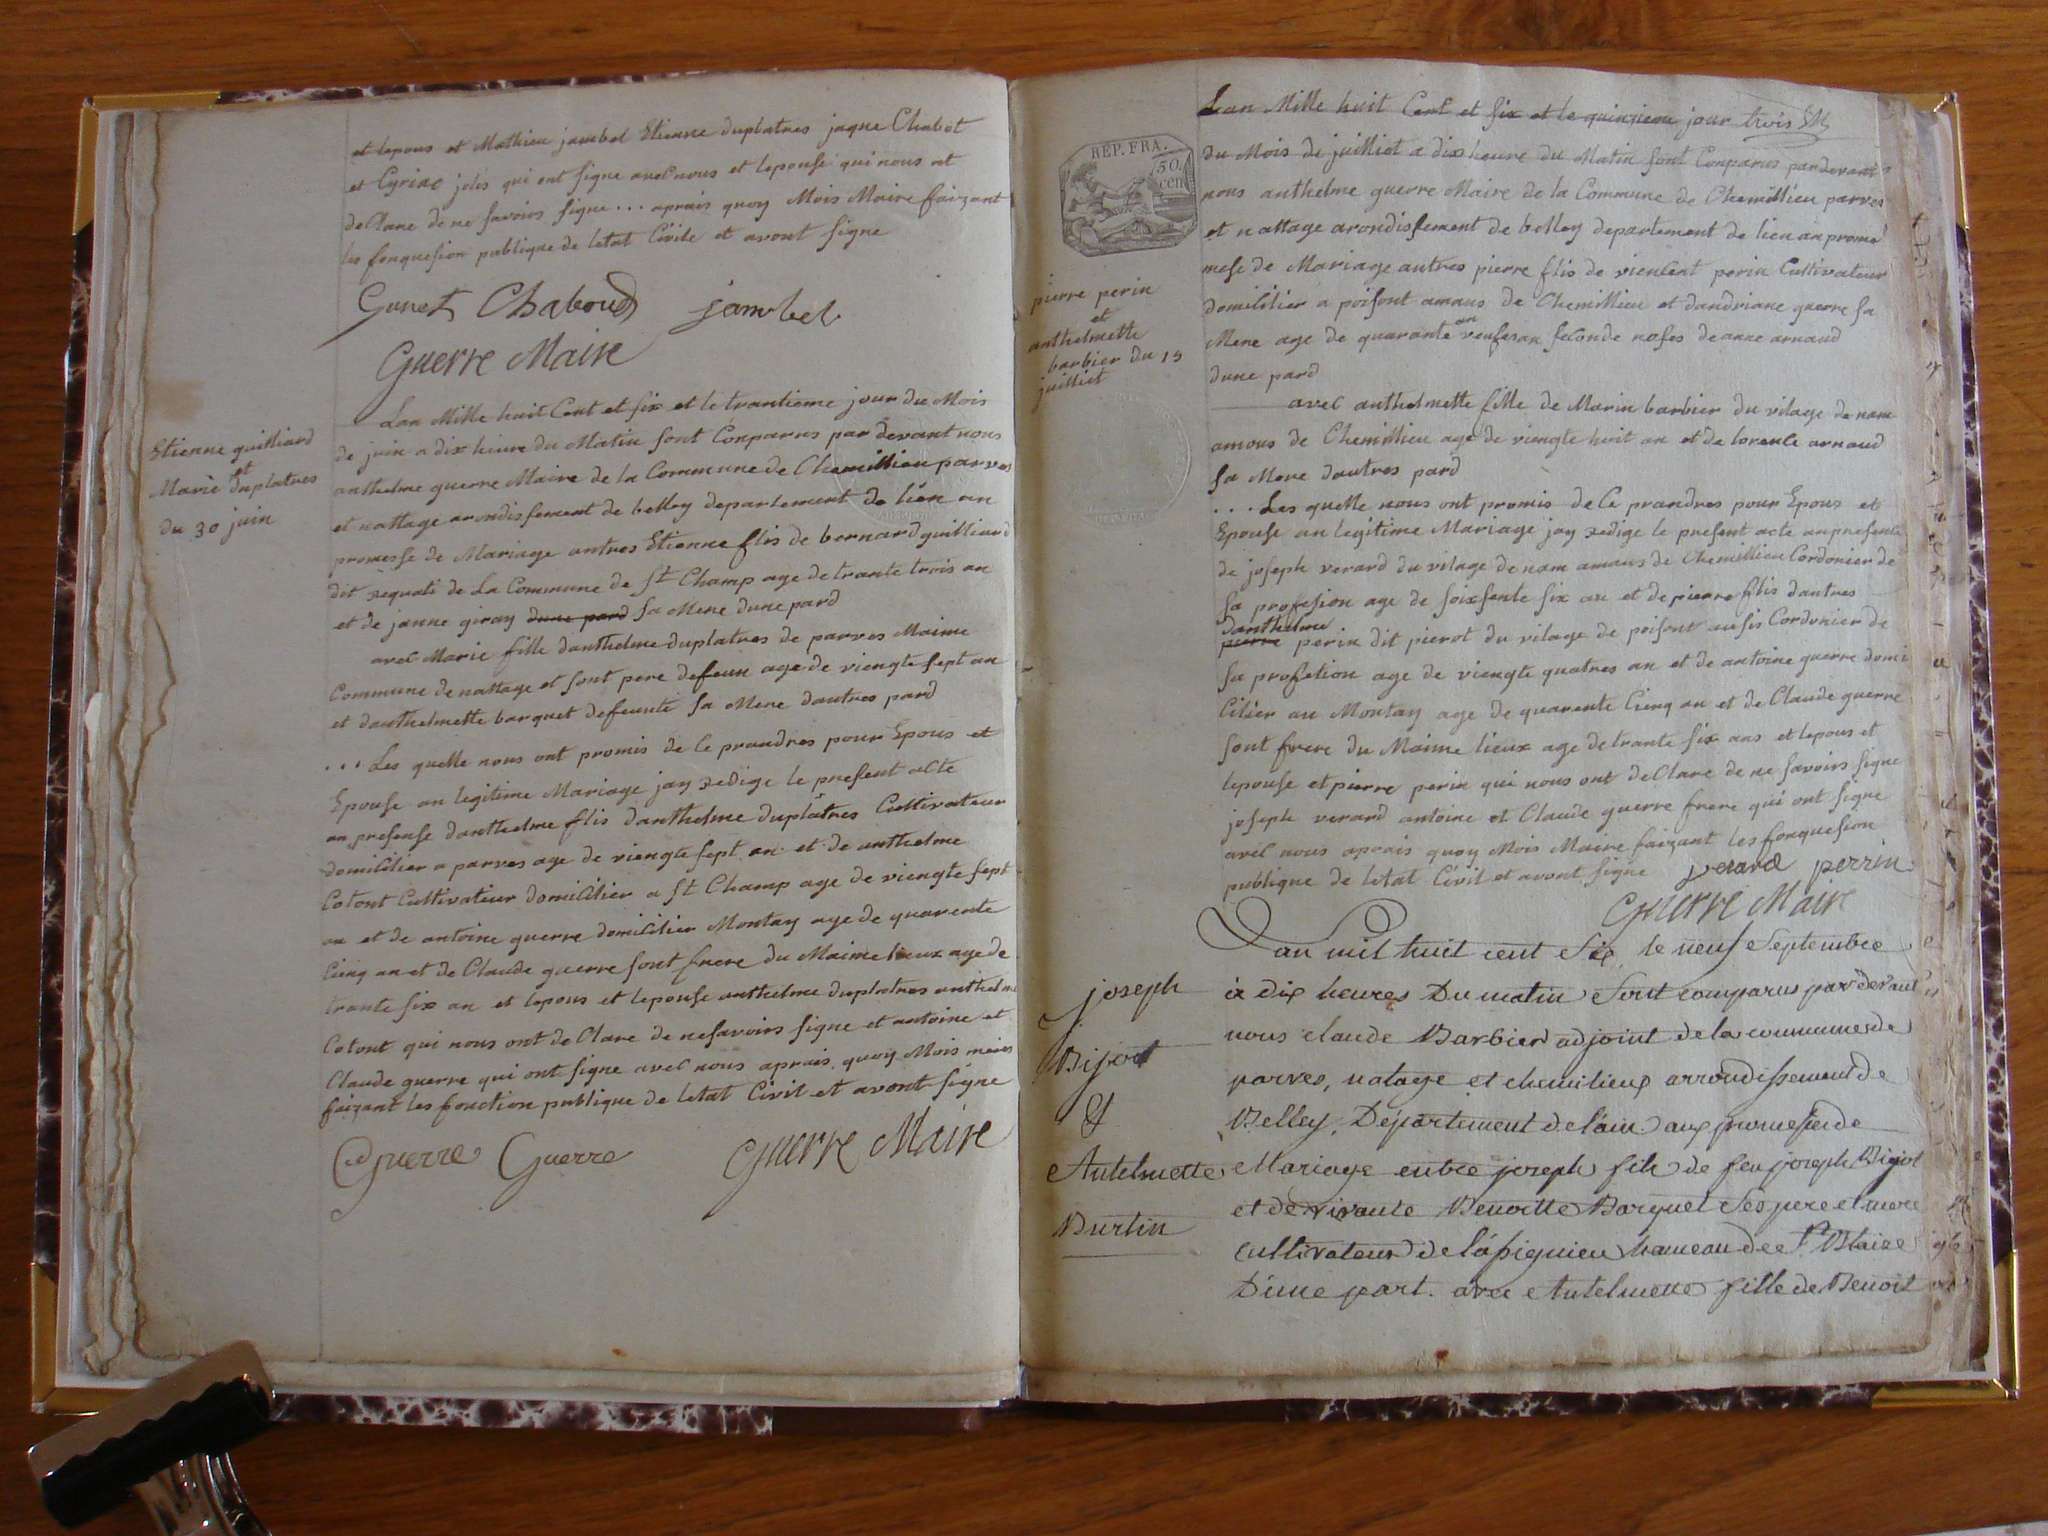 et lepous et Mathieu jambel Etienne duplatres jaque Chabot
et Cyriac jolis qui ont signe avel nous et lepouse qui nous ont
de Clare de ne savoirs signe... aprais quoy Mois Maire faizant
les fonquesion publique de letat Civile et avont signe
Gunet Chaboud jambel
Guerre Maire
Etienne guilliard
et
Marie duplatres
du 30 juin
Lan Mille huit Cent et six et le trantieme jour du Mois
de juin a dix heure du Matin sont Conparus par devant nous
anthelme guerre Maire de la Commune de Chemillieu parves
et nattage arondissement de belley departement de lien an
promesse de Mariage antres Etienne flis de bernard guilliard
dit requati de La Commune de St Champ age de trante trois an
et de janne giray dune pard sa Mere dune pard
avel Marie fille danthelme duplatres de parves Maime
Commune de nattage et sont pere defeun age de viengte sept an
et danthelmette barquet defeunte sa Mere dautres pard
... Les quelle nous ont promis de Ce prandres pour Epous et
Epouse an legitime Mariage jay redige le present acte
an presense danthelme flis danthelme duplatres Cultivateur
domicilier a parves age de viengte sept an et de anthelme
Cotont Cultivateur domicilier a St Champ age de viengte sept
an et de antoine guerre domicilier Montay age de quarente
Cienq an et de Claude guerre sont frere du Maime lieux age de
trante six an et lepous et lepouse anthelme duplatres anthelme
Cotont qui nous ont de Clare de ne savoirs signe et antoine et
Claude guerre qui ont signe avel nous aprais quoy Mois maire
faizant les fonction publique de letat Civit et avont signe
Cd guerre Guerre Guerre Maire
REP. FRA.
50
cen
Lan Mille huit Cent et six et le quinzieme jour trois
du Mois de juilliot a dix heure du Matin sont Conparus par devant
nous anthelme guerre Maire de la Commune de Chemillieu parves
et nattage arondissement de belley departement de lien an prome
mese de Mariage autres pierre flis de vienlent perin Cultivateur
domicilier a poisont amaus de Chemillieu et dandriane guerre sa
Mere age de quarante an veufesan seconde noses de anne arnaud
dune pard
pierre perin
et
anthelmette
barbier du 15
juilliot
avel anthelmette fille de Marin barbier du vilage de nam
amous de Chemillieu age de viengte huit an et de lorence arnaud
sa Mere dautres pard
... Les quelle nous ont promis de Ce prandres pour Epous et
Epouse an legitime Mariage jay redige le present acte an presente
de joseph verard du vilage de nam amaus de Chemillieu Cordonier de
sa profesion age de soixsente six an et de pierre flis dautres
danthelme
pierre perin dit pierot du vilage de poisont ausis Cordonier de
sa profetion age de viengte quatres an et de antoine guerre domi
Cilier au Montay age de quarente Cienq an et de Claude guerre
sont frere du Maime lieux age de trante six ans et lepous et
lepouse et pierre perin qui nous ont de Clare de ne savoirs signe
joseph verard antoine et Claude guerre frere qui ont signe
avel nous aprais quoy Mois Maire faizant les fonquesion
publique de letat Civil et avont signe verard perrin
Guerre Maire
joseph
Bijot
&
Antelmette
Burtin
Lan mil huit cent six le neuf Septembre
à dix heures Du matin Sont comparus par devant
nous claude Barbier adjoint de la commune de
parves, natage et chemilieux arrondissement de
Belley, Département de l'ain aux promesse de
Mariage entre joseph fils de feu joseph Bijot
et de vivante Benoitte Barquet Ses pere et mere
cultivateur de lassignieu hameau de St Blaize
D'une part. avec Antelmette fille de Benoit